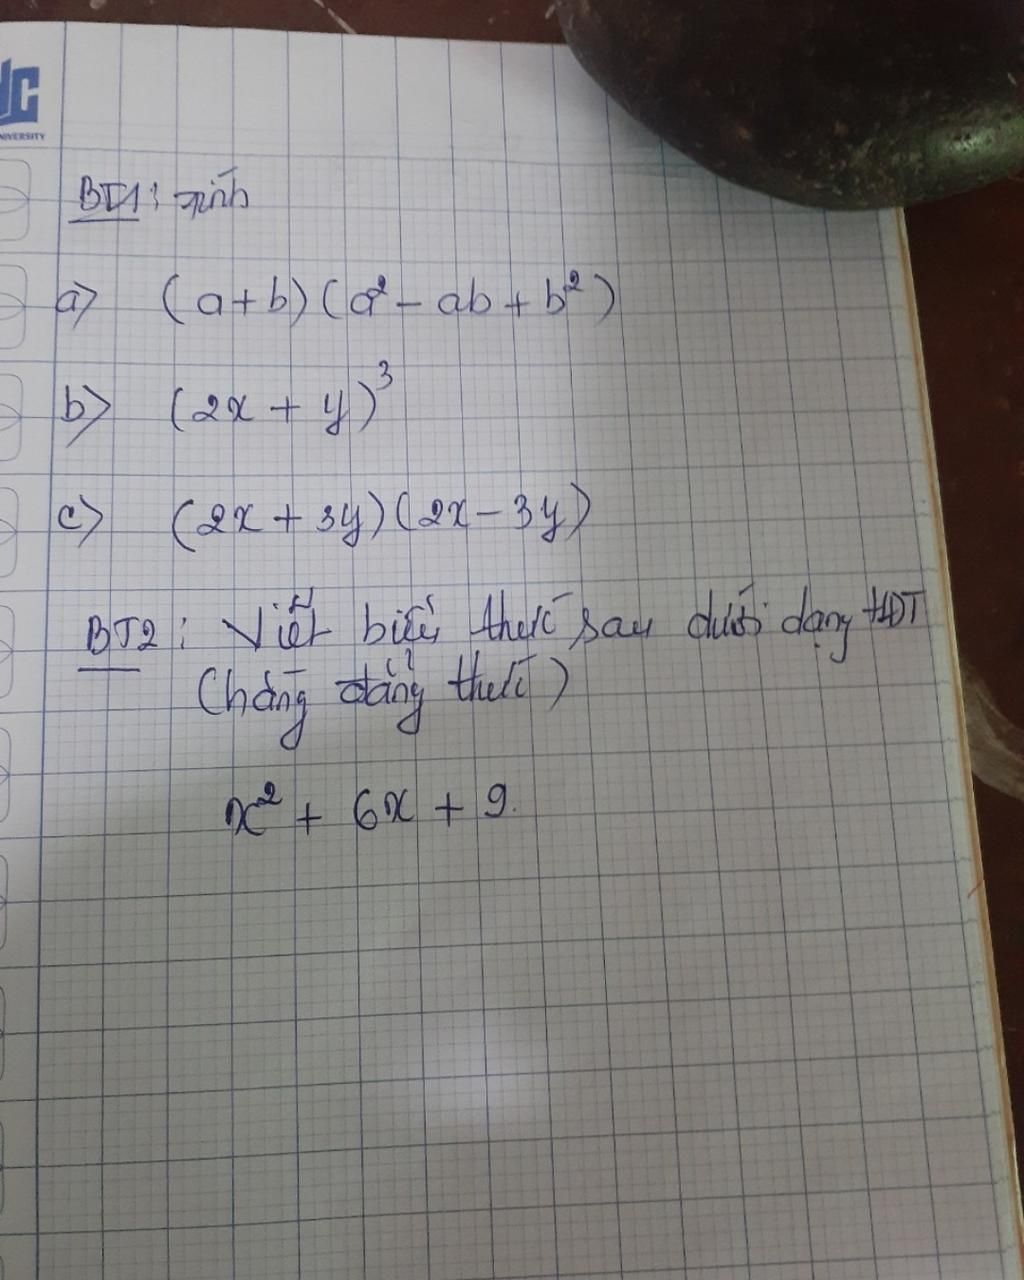 UNIVERSITY
BT1: Tính
a) (a+b)(a² - ab + b²)
b) (2x + y)³
c) (2x + 3y)(2x - 3y)
BT2: Viết biểu thức sau dưới dạng HĐT
(hằng đẳng thức)
x² + 6x + 9.